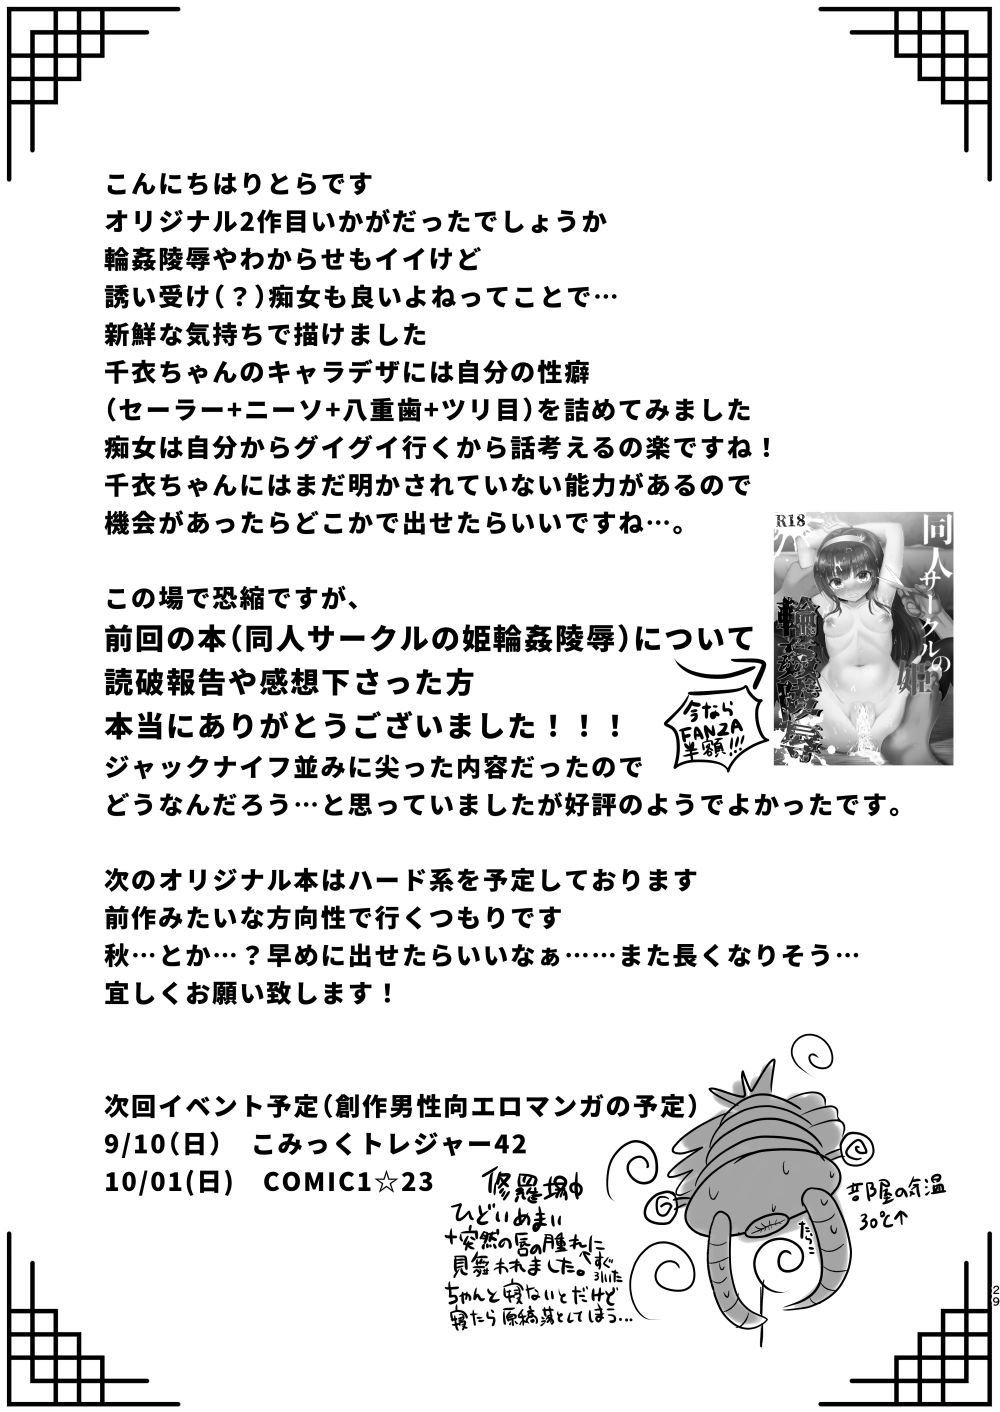 こんにちはりとらです
オリジナル2作目いかがだったでしょうか
輪姦陵辱やわからせもイイけど
誘い受け(？)痴女も良いよねってことで…
新鮮な気持ちで描けました
千衣ちゃんのキャラデザには自分の性癖
(セーラー+ニーソ+八重歯+ツリ目)を詰めてみました
痴女は自分からグイグイ行くから話考えるの楽ですね！
千衣ちゃんにはまだ明かされていない能力があるので
機会があったらどこかで出せたらいいですね…。
この場で恐縮ですが、
前回の本(同人サークルの姫輪姦陵辱)について
読破報告や感想下さった方
本当にありがとうございました！！！
ジャックナイフ並みに尖った内容だったので
どうなんだろう…と思っていましたが好評のようでよかったです。
R18
同人サークルの姫
輪姦陵辱
今なら
FANZA
半額!!!
次のオリジナル本はハード系を予定しております
前作みたいな方向性で行くつもりです
秋…とか…？早めに出せたらいいなぁ……また長くなりそう…
宜しくお願い致します！
次回イベント予定(創作男性向エロマンガの予定)
9/10(日)　こみっくトレジャー42
10/01(日)　COMIC1☆23
修羅場中
ひどいめまい
+突然の唇の腫れに
見舞われました。
すぐ
引いた
ちゃんと寝ないとだけど
寝たら原稿落としてしまう...
たらこ
部屋の気温
30℃↑
29